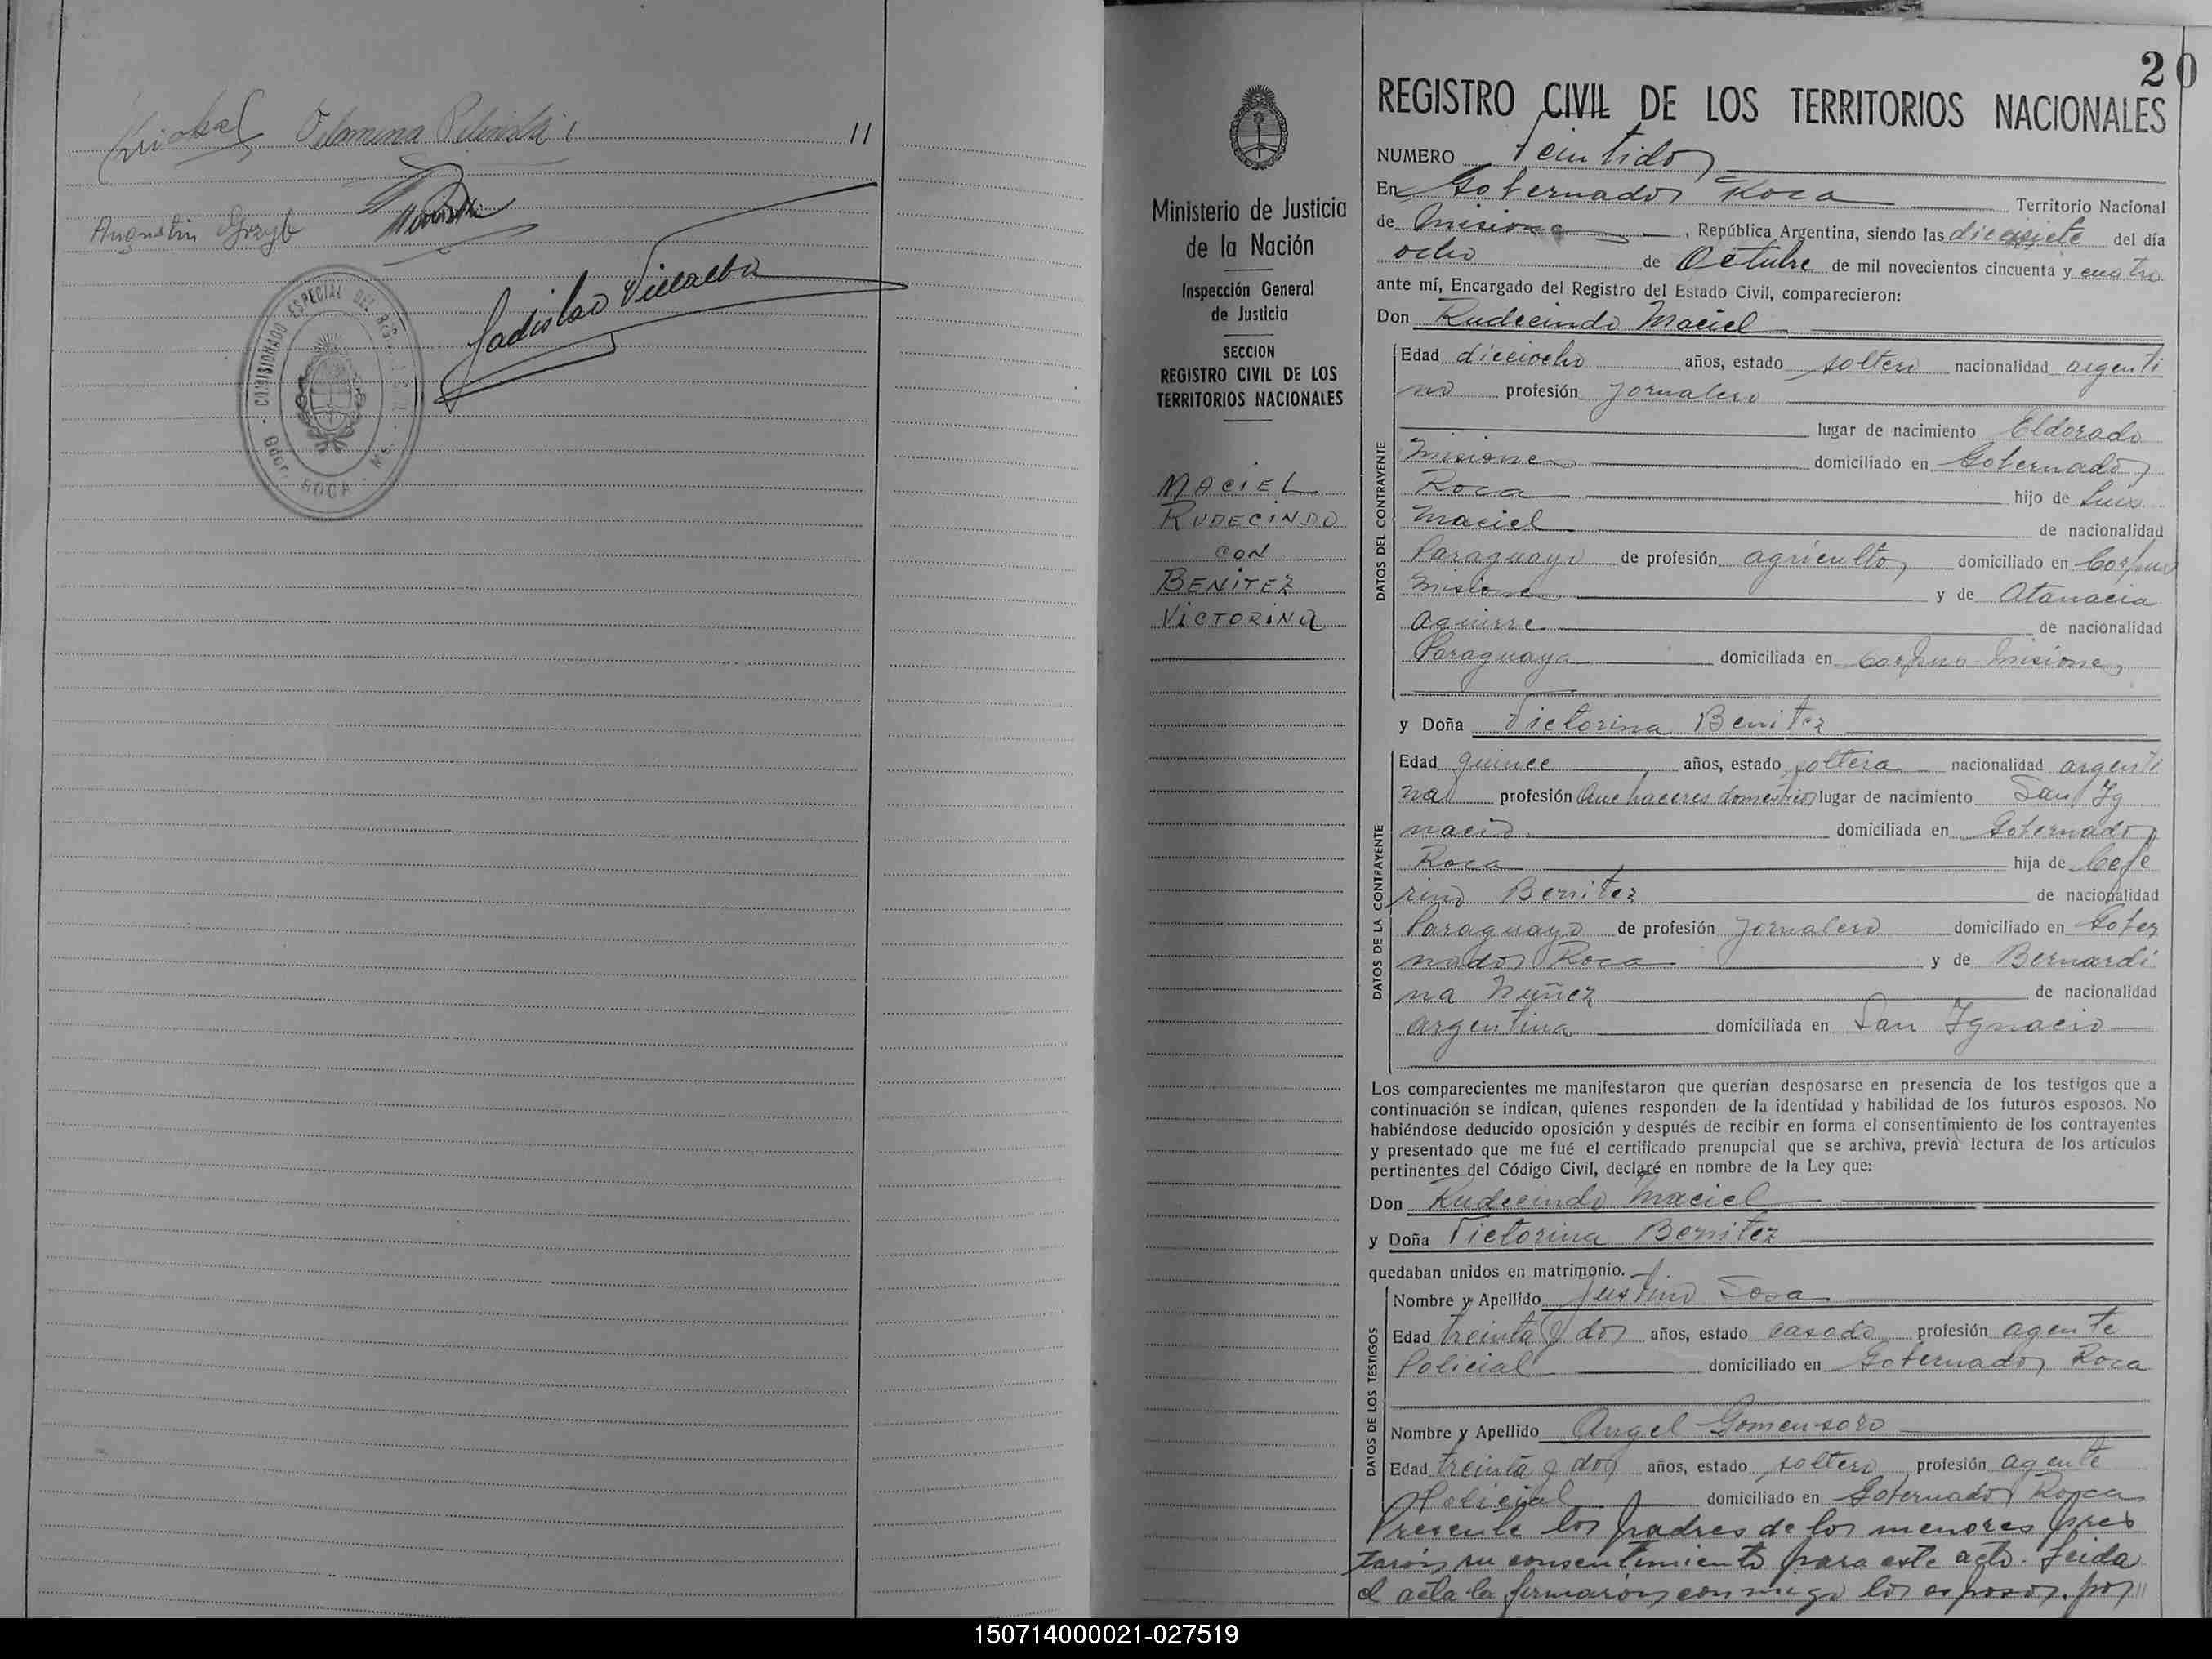 Filomena
11
Augustin Grzyb
Ladislao Villalba
COMISIONADO ESPECIAL DEL REG. CIVIL
Gdor. ROCA
Ministerio de Justicia
de la Nación
Inspección General
de Justicia
SECCION
REGISTRO CIVIL DE LOS
TERRITORIOS NACIONALES
MACIEL
RUDECINDO
CON
BENITEZ
VICTORINA
20
REGISTRO CIVIL DE LOS TERRITORIOS NACIONALES
NUMERO Veintidos
En Gobernador Roca Territorio Nacional
de Misiones, República Argentina, siendo las diecisiete del día
ocho de Octubre de mil novecientos cincuenta y cuatro
ante mí, Encargado del Registro del Estado Civil, comparecieron:
Don Rudecindo Maciel
DATOS DEL CONTRAYENTE
Edad dieciocho años, estado soltero nacionalidad argenti
no profesión Jornalero
lugar de nacimiento Eldorado
Misiones domiciliado en Gobernador
Roca hijo de Luis
Maciel de nacionalidad
Paraguayo de profesión agricultor domiciliado en Corpus
Misiones y de Atanacia
Aguirre de nacionalidad
Paraguaya domiciliada en Corpus Misiones
y Doña Victorina Benitez
DATOS DE LA CONTRAYENTE
Edad quince años, estado soltera nacionalidad argenti
na profesión Quehaceres domesticos lugar de nacimiento San Ig
nacio domiciliada en Gobernador
Roca hija de Cefe
rino Benitez de nacionalidad
Paraguayo de profesión Jornalero domiciliado en Gober
nador Roca y de Bernardi
na Nuñez de nacionalidad
argentina domiciliada en San Ignacio
Los comparecientes me manifestaron que querían desposarse en presencia de los testigos que a
continuación se indican, quienes responden de la identidad y habilidad de los futuros esposos. No
habiéndose deducido oposición y después de recibir en forma el consentimiento de los contrayentes
y presentado que me fué el certificado prenupcial que se archiva, previa lectura de los artículos
pertinentes del Código Civil, declaré en nombre de la Ley que:
Don Rudecindo Maciel
y Doña Victorina Benitez
quedaban unidos en matrimonio.
DATOS DE LOS TESTIGOS
Nombre y Apellido Justino Sosa
Edad treinta y dos años, estado casado profesión agente
Policial domiciliado en Gobernador Roca
Nombre y Apellido Angel Gomensoro
Edad treinta y dos años, estado soltero profesión agente
Policial domiciliado en Gobernador Roca
Presente los padres de los menores pres
taron su consentimiento para este acto. Leida
el acta la firmaron conmigo los esposos, por //
150714000021-027519